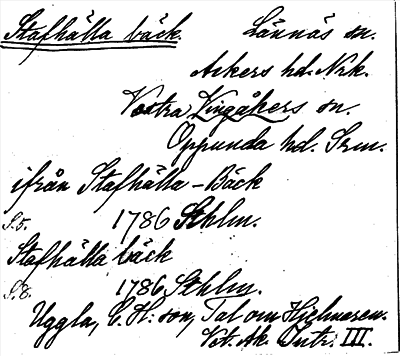 Stafhälla bäck. Lännäs sn.
Askers hd. Nrk.
Västra Vingåkers sn.
Oppunda hd. Srm.
ifrån Stafhälla-Bäck
S.5. 1786 Sthlm.
Stafhälla bäck
S.8. 1786 Sthlm.
Uggla, C. H:son, Tal om Hielmaren.
Vet. Ak. Intr. III.